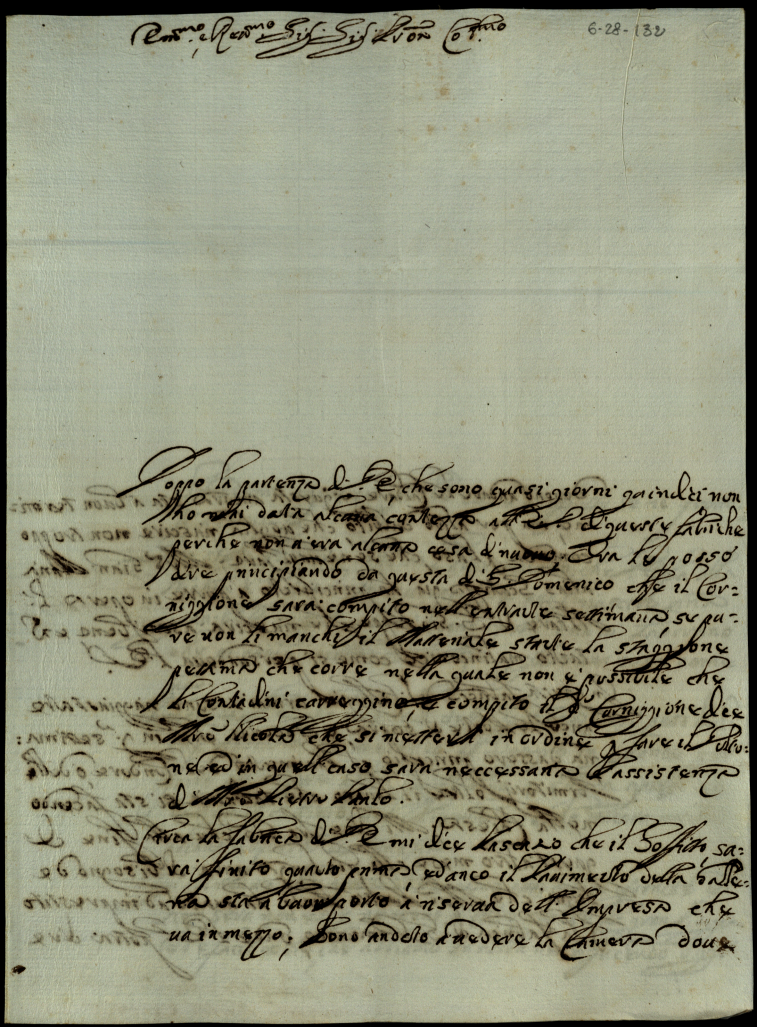 Em.mo e Rev.mo Sig. Sig. Pron Co.mo
6-28-132
Doppo la partenza di V.E. che sono quasi giorni quindeci non
l'ho mai data alcuna contezza di queste fabriche
perche non v'era alcuna cosa di nuovo. Ora le posso
dire principiando da questa di S. Domenico che il Cor-
niggione sarà compito nell'entrante settimana se pu-
re non li manchi il Materiale stante la staggione
pessima che corre nella quale non è possibile che
li Contadini carreggino, e compito il d.o Corniggione dice
M.ro Nicola che si metterà in ordine p fare il
ne ed in quell caso sarà neccessaria l'assistenza
di M.ro Pietro Paolo.
Circa la fabrica di V.E. mi dice che il Soffitto sa-
rà finito quanto prima ed anco il Pavimento della Galle-
ria sta a buon porto à riserva dell'Impresa che
va in mezzo; Sono andato à vedere la Camera dove